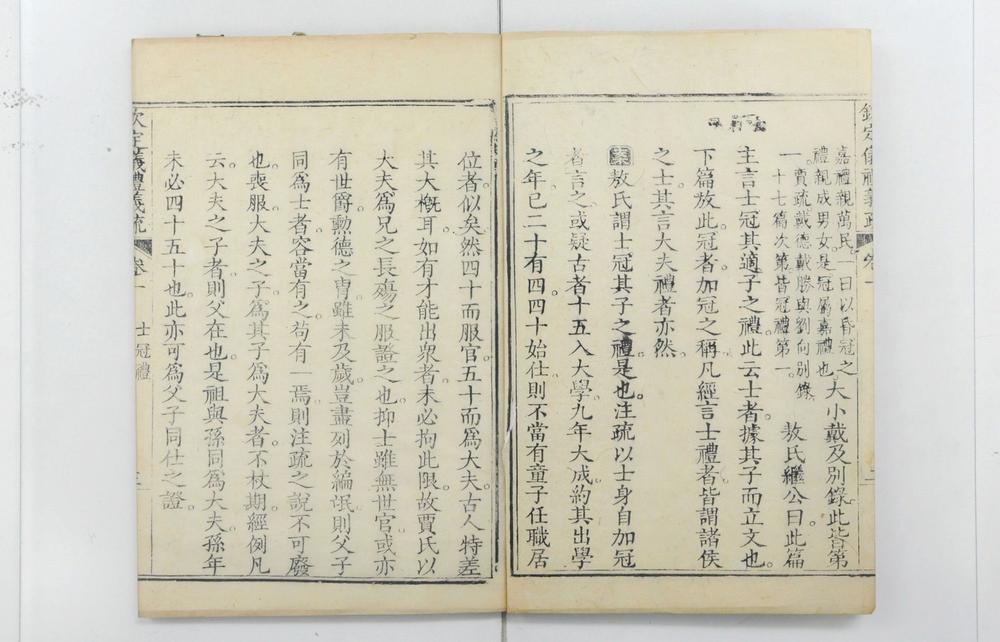 欽定儀禮義疏 卷一 二
嘉禮親萬民。一曰以昏冠之
禮親成男女。是冠屬嘉禮也
大小戴及別錄。此皆第
一。
賈疏戴德戴勝與劉向別錄
十七篇次第。皆冠禮第一。
敖氏繼公曰此篇
主言士冠其適子之禮。此云士者。據其子而立文也。
下篇放此。冠者。加冠之稱。凡經言士禮者。皆謂諸侯
之士。其言大夫禮者亦然。
案敖氏謂士冠其子之禮。是也。注疏以士身自加冠
者言之。或疑古者十五入大學。九年大成。約其出學
之年。已二十有四。四十始仕。則不當有童子任職居
位者。似矣。然四十而服官。五十而爲大夫。古人特差
其大概耳。如有才能出衆者。未必拘此限。故賈氏以
大夫爲兄之長殤之服證之也。抑士雖無世官。或亦
有世爵。勲德之胄。雖未及歲。豈盡列於編氓。則父子
同爲士者。容當有之。苟有一焉。則注疏之說不可廢
也。喪服大夫之子爲其子爲大夫者。不杖期。經例凡
云大夫之子者。則父在也。是祖與孫同爲大夫。孫年
未必四十五十也。此亦可爲父子同仕之證。
欽定儀禮義疏 卷一 士冠禮 三